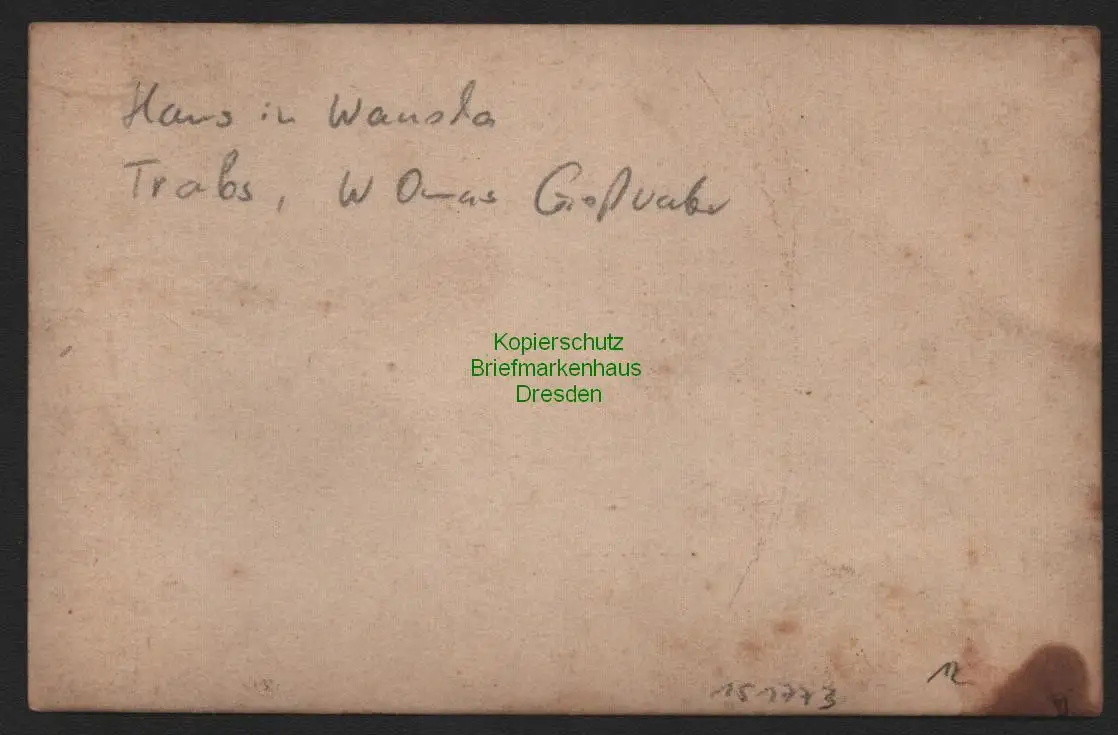 Haus in Wansla
Trabs, W Omas Großvater
Kopierschutz
Briefmarkenhaus
Dresden
12
151773